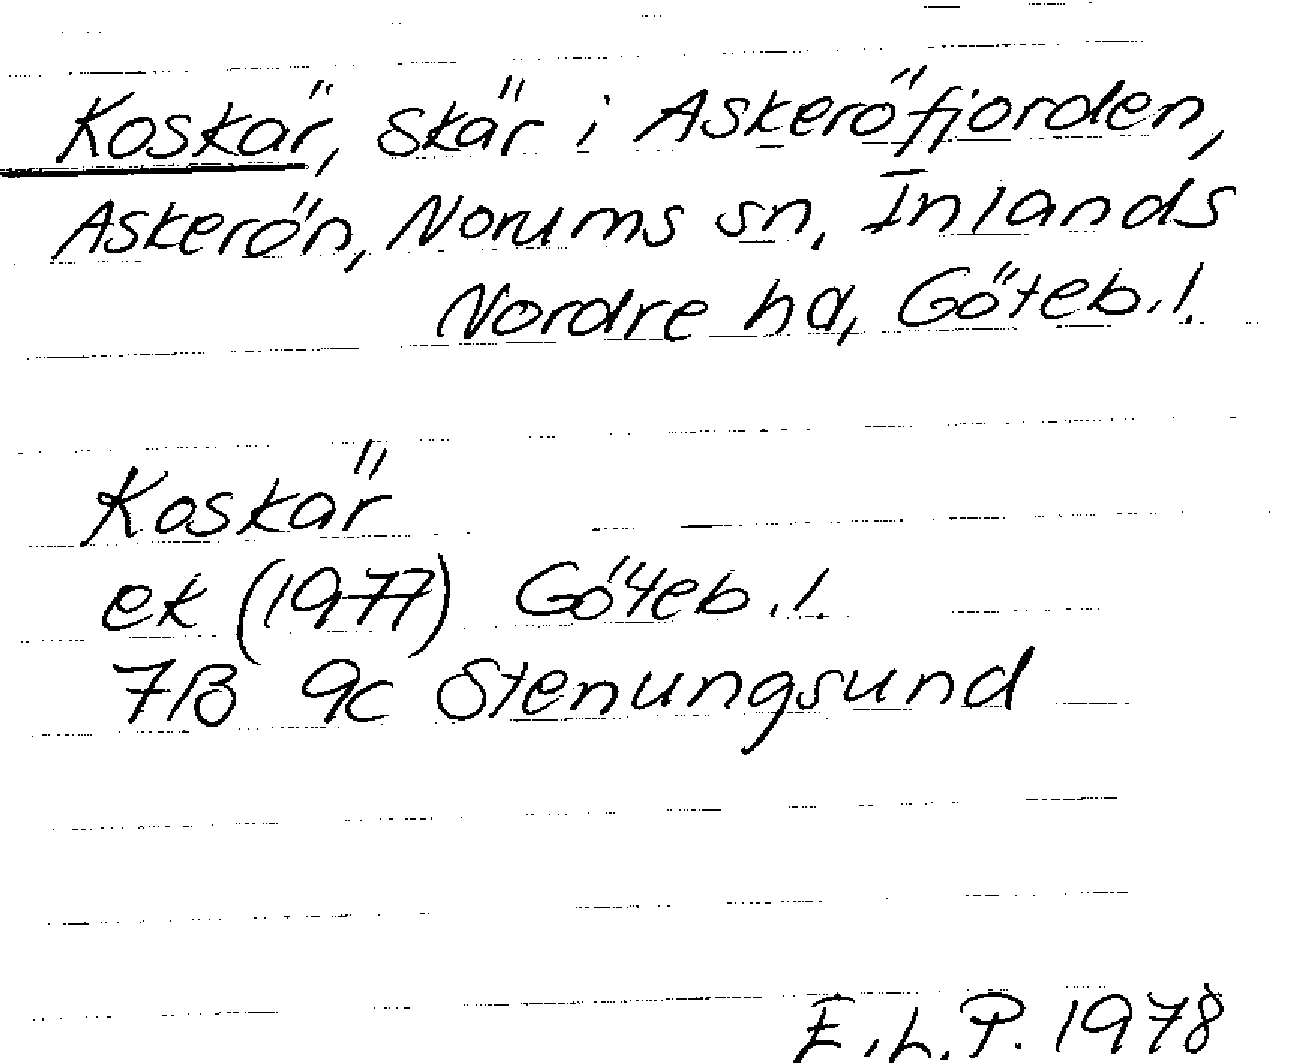 Koskär, skär i Askeröfjorden,
Askerön, Norums sn, Inlands
Nordre hd, Göteb.l.
Koskär
ek (1977) Göteb.l.
7B 9c Stenungsund
E.L.P. 1978